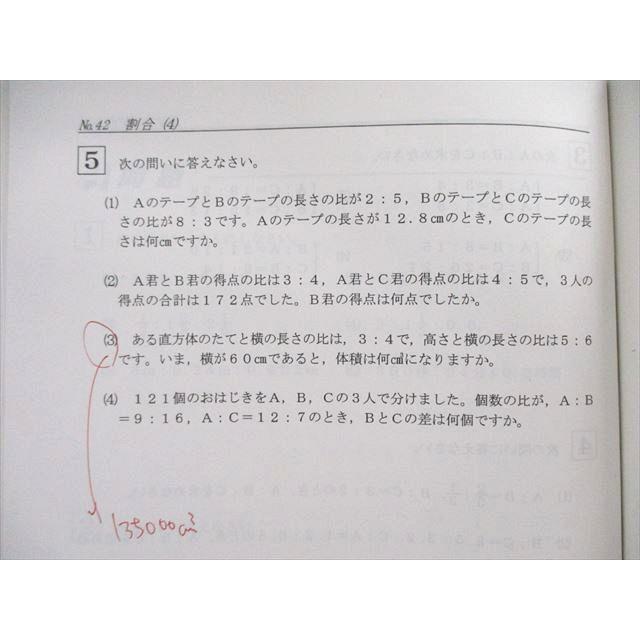 No.42 割合 (4)
5 次の問いに答えなさい。
(1) AのテープとBのテープの長さの比が2:5,BのテープとCのテープの長
さの比が8:3です。Aのテープの長さが12.8㎝のとき,Cのテープの長
さは何㎝ですか。
(2) A君とB君の得点の比は3:4,A君とC君の得点の比は4:5で,3人の
得点の合計は172点でした。B君の得点は何点でしたか。
(3) ある直方体のたてと横の長さの比は,3:4で,高さと横の長さの比は5:6
です。いま,横が60㎝であると,体積は何㎤になりますか。
(4) 121個のおはじきをA,B,Cの3人で分けました。個数の比が,A:B
=9:16,A:C=12:7のとき,BとCの差は何個ですか。
135000cm³